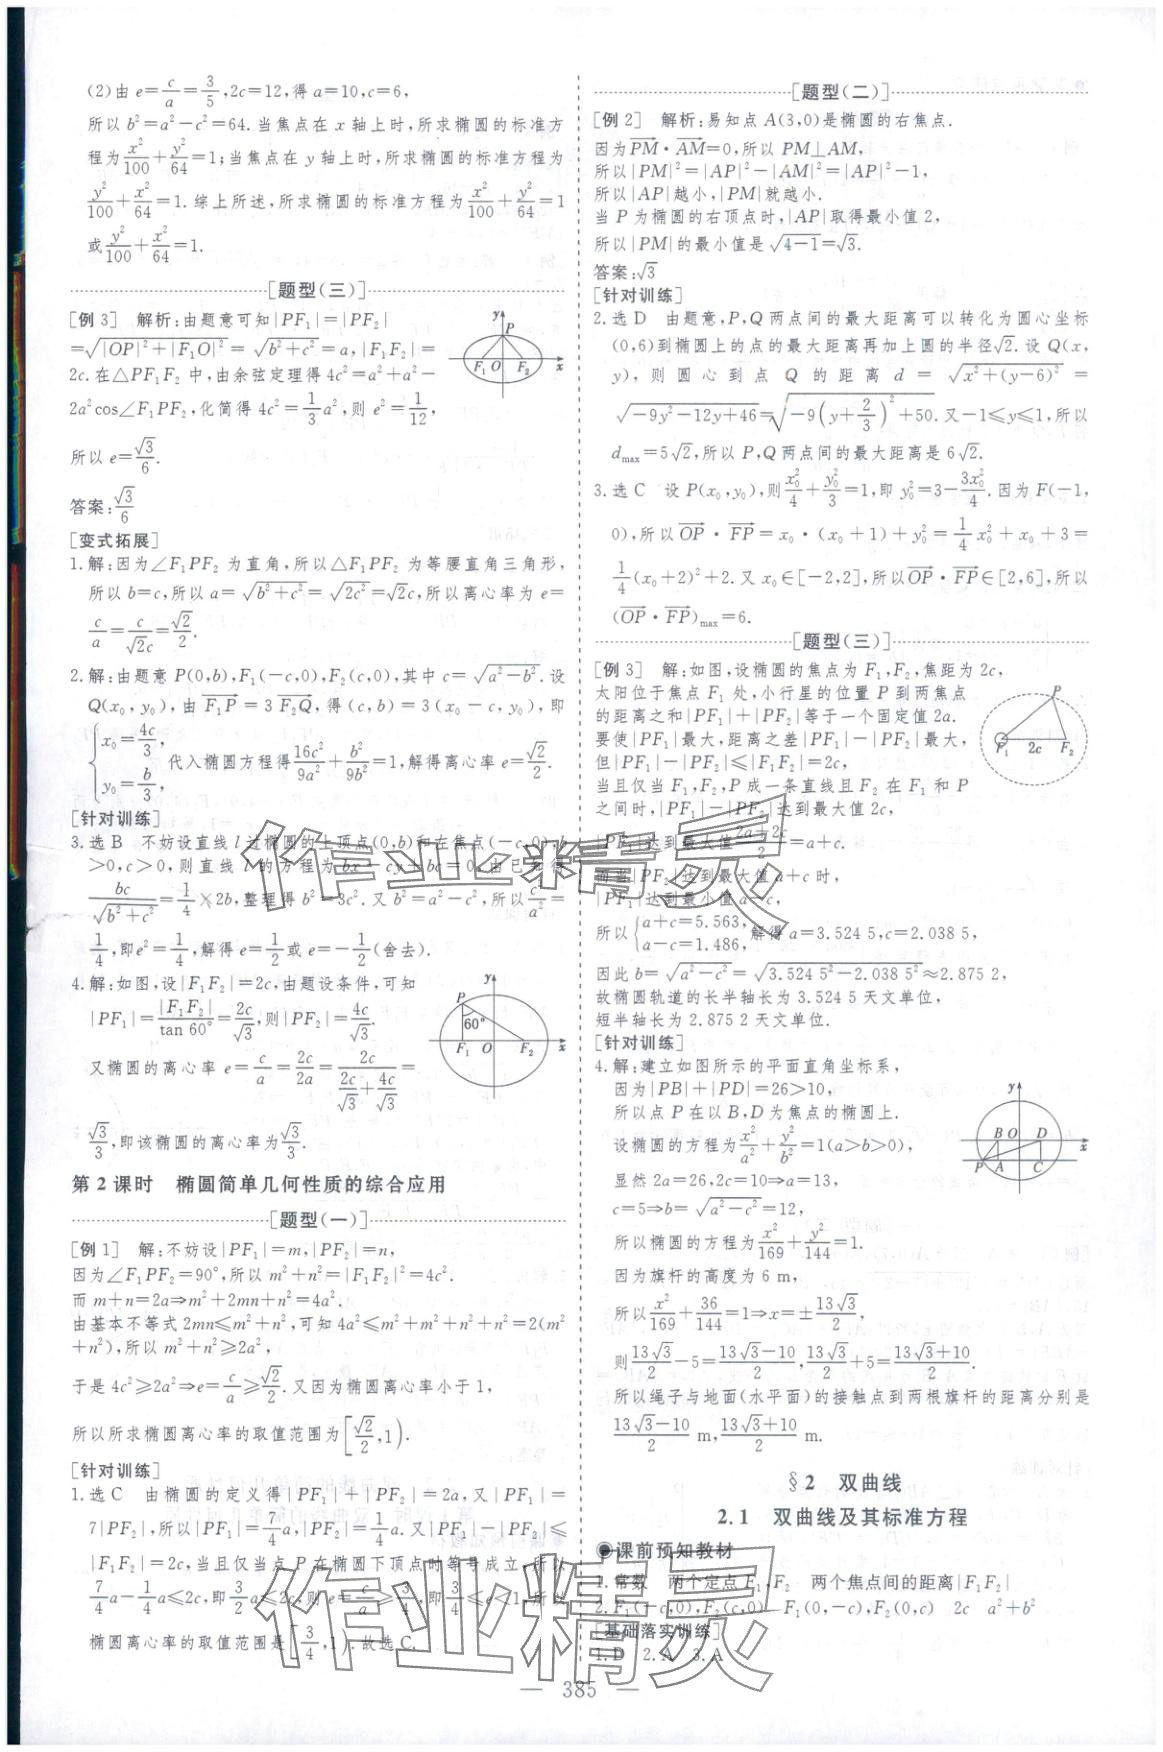 (2)由 e=c/a=3/5,2c=12,得 a=10,c=6,
所以 b²=a²-c²=64.当焦点在 x 轴上时,所求椭圆的标准方
程为x²/100+y²/64=1;当焦点在 y 轴上时,所求椭圆的标准方程为
y²/100+x²/64=1.综上所述,所求椭圆的标准方程为x²/100+y²/64=1
或y²/100+x²/64=1.
[题型(三)]
[例3] 解析:由题意可知|PF₁|=|PF₂|
=√(|OP|²+|F₁O|²)=√(b²+c²)=a,|F₁F₂|=
2c.在△PF₁F₂中,由余弦定理得4c²=a²+a²-
2a²cos∠F₁PF₂,化简得4c²=1/3a²,则 e²=1/12,
所以 e=√3/6.
答案:√3/6
y P F₁ O F₂ x
[变式拓展]
1.解:因为∠F₁PF₂为直角,所以△F₁PF₂为等腰直角三角形,
所以 b=c,所以 a=√(b²+c²)=√(2c²)=√2c,所以离心率为 e=
c/a=c/(√2c)=√2/2.
2.解:由题意 P(0,b),F₁(-c,0),F₂(c,0),其中 c=√(a²-b²).设
Q(x₀,y₀),由 F₁P→=3F₂Q→,得(c,b)=3(x₀-c,y₀),即
{x₀=4c/3, y₀=b/3, 代入椭圆方程得16c²/9a²+b²/9b²=1,解得离心率 e=√2/2.
[针对训练]
3.选B 不妨设直线 l 过椭圆的上顶点(0,b)和左焦点(-c,0),b
>0,c>0,则直线 l 的方程为 bx-cy+bc=0,由已知得
bc/√(b²+c²)=1/4×2b,整理得 b²=3c².又 b²=a²-c²,所以c²/a²=
1/4,即e²=1/4,解得 e=1/2或 e=-1/2(舍去).
4.解:如图,设|F₁F₂|=2c,由题设条件,可知
|PF₁|=|F₁F₂|/tan 60°=2c/√3,则|PF₂|=4c/√3.
又椭圆的离心率 e=c/a=2c/2a=2c/(2c/√3+4c/√3)=
√3/3,即该椭圆的离心率为√3/3.
y P 60° F₁ O F₂ x
第2课时 椭圆简单几何性质的综合应用
[题型(一)]
[例1] 解:不妨设|PF₁|=m,|PF₂|=n,
因为∠F₁PF₂=90°,所以 m²+n²=|F₁F₂|²=4c².
而 m+n=2a⇒m²+2mn+n²=4a².
由基本不等式 2mn≤m²+n²,可知 4a²≤m²+m²+n²+n²=2(m²
+n²),所以 m²+n²≥2a²,
于是 4c²≥2a²⇒e=c/a≥√2/2.又因为椭圆离心率小于1,
所以所求椭圆离心率的取值范围为[√2/2,1).
[针对训练]
1.选C 由椭圆的定义得|PF₁|+|PF₂|=2a,又|PF₁|=
7|PF₂|,所以|PF₁|=7/4a,|PF₂|=1/4a.又|PF₁|-|PF₂|≤
|F₁F₂|=2c,当且仅当点 P 在椭圆下顶点时等号成立,所以
7/4a-1/4a≤2c,即3/2a≤2c,则 e=c/a≥3/4,即3/4≤e<1,所以
椭圆离心率的取值范围是[3/4,1).故选C.
[题型(二)]
[例2] 解析:易知点 A(3,0)是椭圆的右焦点.
因为PM→·AM→=0,所以 PM⊥AM,
所以|PM|²=|AP|²-|AM|²=|AP|²-1,
所以|AP|越小,|PM|就越小.
当 P 为椭圆的右顶点时,|AP|取得最小值2,
所以|PM|的最小值是√(4-1)=√3.
答案:√3
[针对训练]
2.选D 由题意,P,Q 两点间的最大距离可以转化为圆心坐标
(0,6)到椭圆上的点的最大距离再加上圆的半径√2.设 Q(x,
y),则圆心到点 Q 的距离 d=√(x²+(y-6)²)=
√(-9y²-12y+46)=√(-9(y+2/3)²+50).又-1≤y≤1,所以
dmax=5√2,所以 P,Q 两点间的最大距离是 6√2.
3.选C 设 P(x₀,y₀),则x₀²/4+y₀²/3=1,即 y₀²=3-3x₀²/4.因为 F(-1,
0),所以OP→·FP→=x₀·(x₀+1)+y₀²=1/4x₀²+x₀+3=
1/4(x₀+2)²+2.又 x₀∈[-2,2],所以OP→·FP→∈[2,6],所以
(OP→·FP→)max=6.
[题型(三)]
[例3] 解:如图,设椭圆的焦点为 F₁,F₂,焦距为2c,
太阳位于焦点 F₁ 处,小行星的位置 P 到两焦点
的距离之和|PF₁|+|PF₂|等于一个固定值2a.
要使|PF₁|最大,距离之差|PF₁|-|PF₂|最大,
但|PF₁|-|PF₂|≤|F₁F₂|=2c,
当且仅当 F₁,F₂,P 成一条直线且 F₂ 在 F₁ 和 P
之间时,|PF₁|-|PF₂|达到最大值2c,
|PF₁|达到最大值(2a+2c)/2=a+c.
而当|PF₂|达到最大值 a+c 时,
|PF₁|达到最小值 a-c,
所以{a+c=5.563, a-c=1.486, 解得 a=3.524 5,c=2.038 5,
因此 b=√(a²-c²)=√(3.524 5²-2.038 5²)≈2.875 2,
故椭圆轨道的长半轴长为3.524 5天文单位,
短半轴长为2.875 2天文单位.
P F₁ 2c F₂
[针对训练]
4.解:建立如图所示的平面直角坐标系,
因为|PB|+|PD|=26>10,
所以点 P 在以 B,D 为焦点的椭圆上.
设椭圆的方程为x²/a²+y²/b²=1(a>b>0),
显然 2a=26,2c=10⇒a=13,
c=5⇒b=√(a²-c²)=12,
所以椭圆的方程为x²/169+y²/144=1.
因为旗杆的高度为6 m,
所以x²/169+36/144=1⇒x=±13√3/2,
则13√3/2-5=(13√3-10)/2,13√3/2+5=(13√3+10)/2.
所以绳子与地面(水平面)的接触点到两根旗杆的距离分别是
(13√3-10)/2 m,(13√3+10)/2 m.
y B O D x P A C
§2 双曲线
2.1 双曲线及其标准方程
课前预知教材
1.常数 两个定点 F₁,F₂ 两个焦点间的距离|F₁F₂|
2.F₁(-c,0),F₂(c,0) F₁(0,-c),F₂(0,c) 2c a²+b²
[基础落实训练]
1.D 2.A 3.A
— 385 —
作业精灵
作业精灵